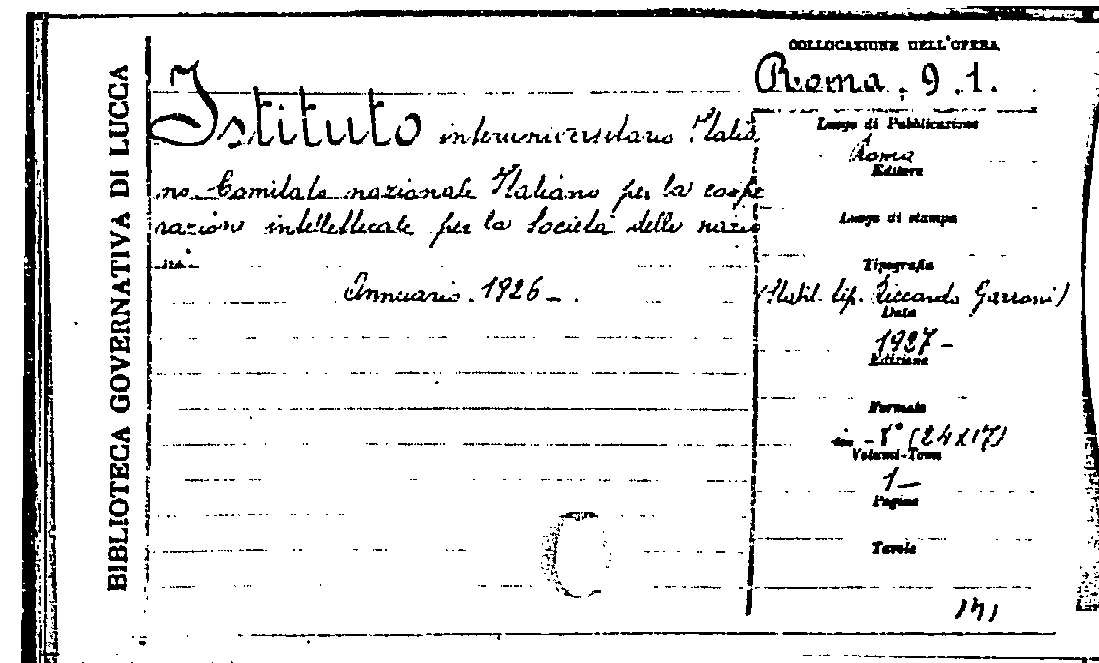 BIBLIOTECA GOVERNATIVA DI LUCCA
Istituto interuniversitario Italia
no. Comitato nazionale Italiano per la coope
razione intellettuale per la Società delle nazio
ni.
Annuario. 1926 -.
COLLOCAZIONE DELL'OPERA
Roma. 9.1.
Luogo di Pubblicazione
Roma
Editore
Luogo di stampa
Tipografia
(Stabil. tip. Riccardo Garroni)
Data
1927 -
Edizione
Formato
in - 8° (24x17)
Volumi-Tomo
1 -
Pagine
Tavole